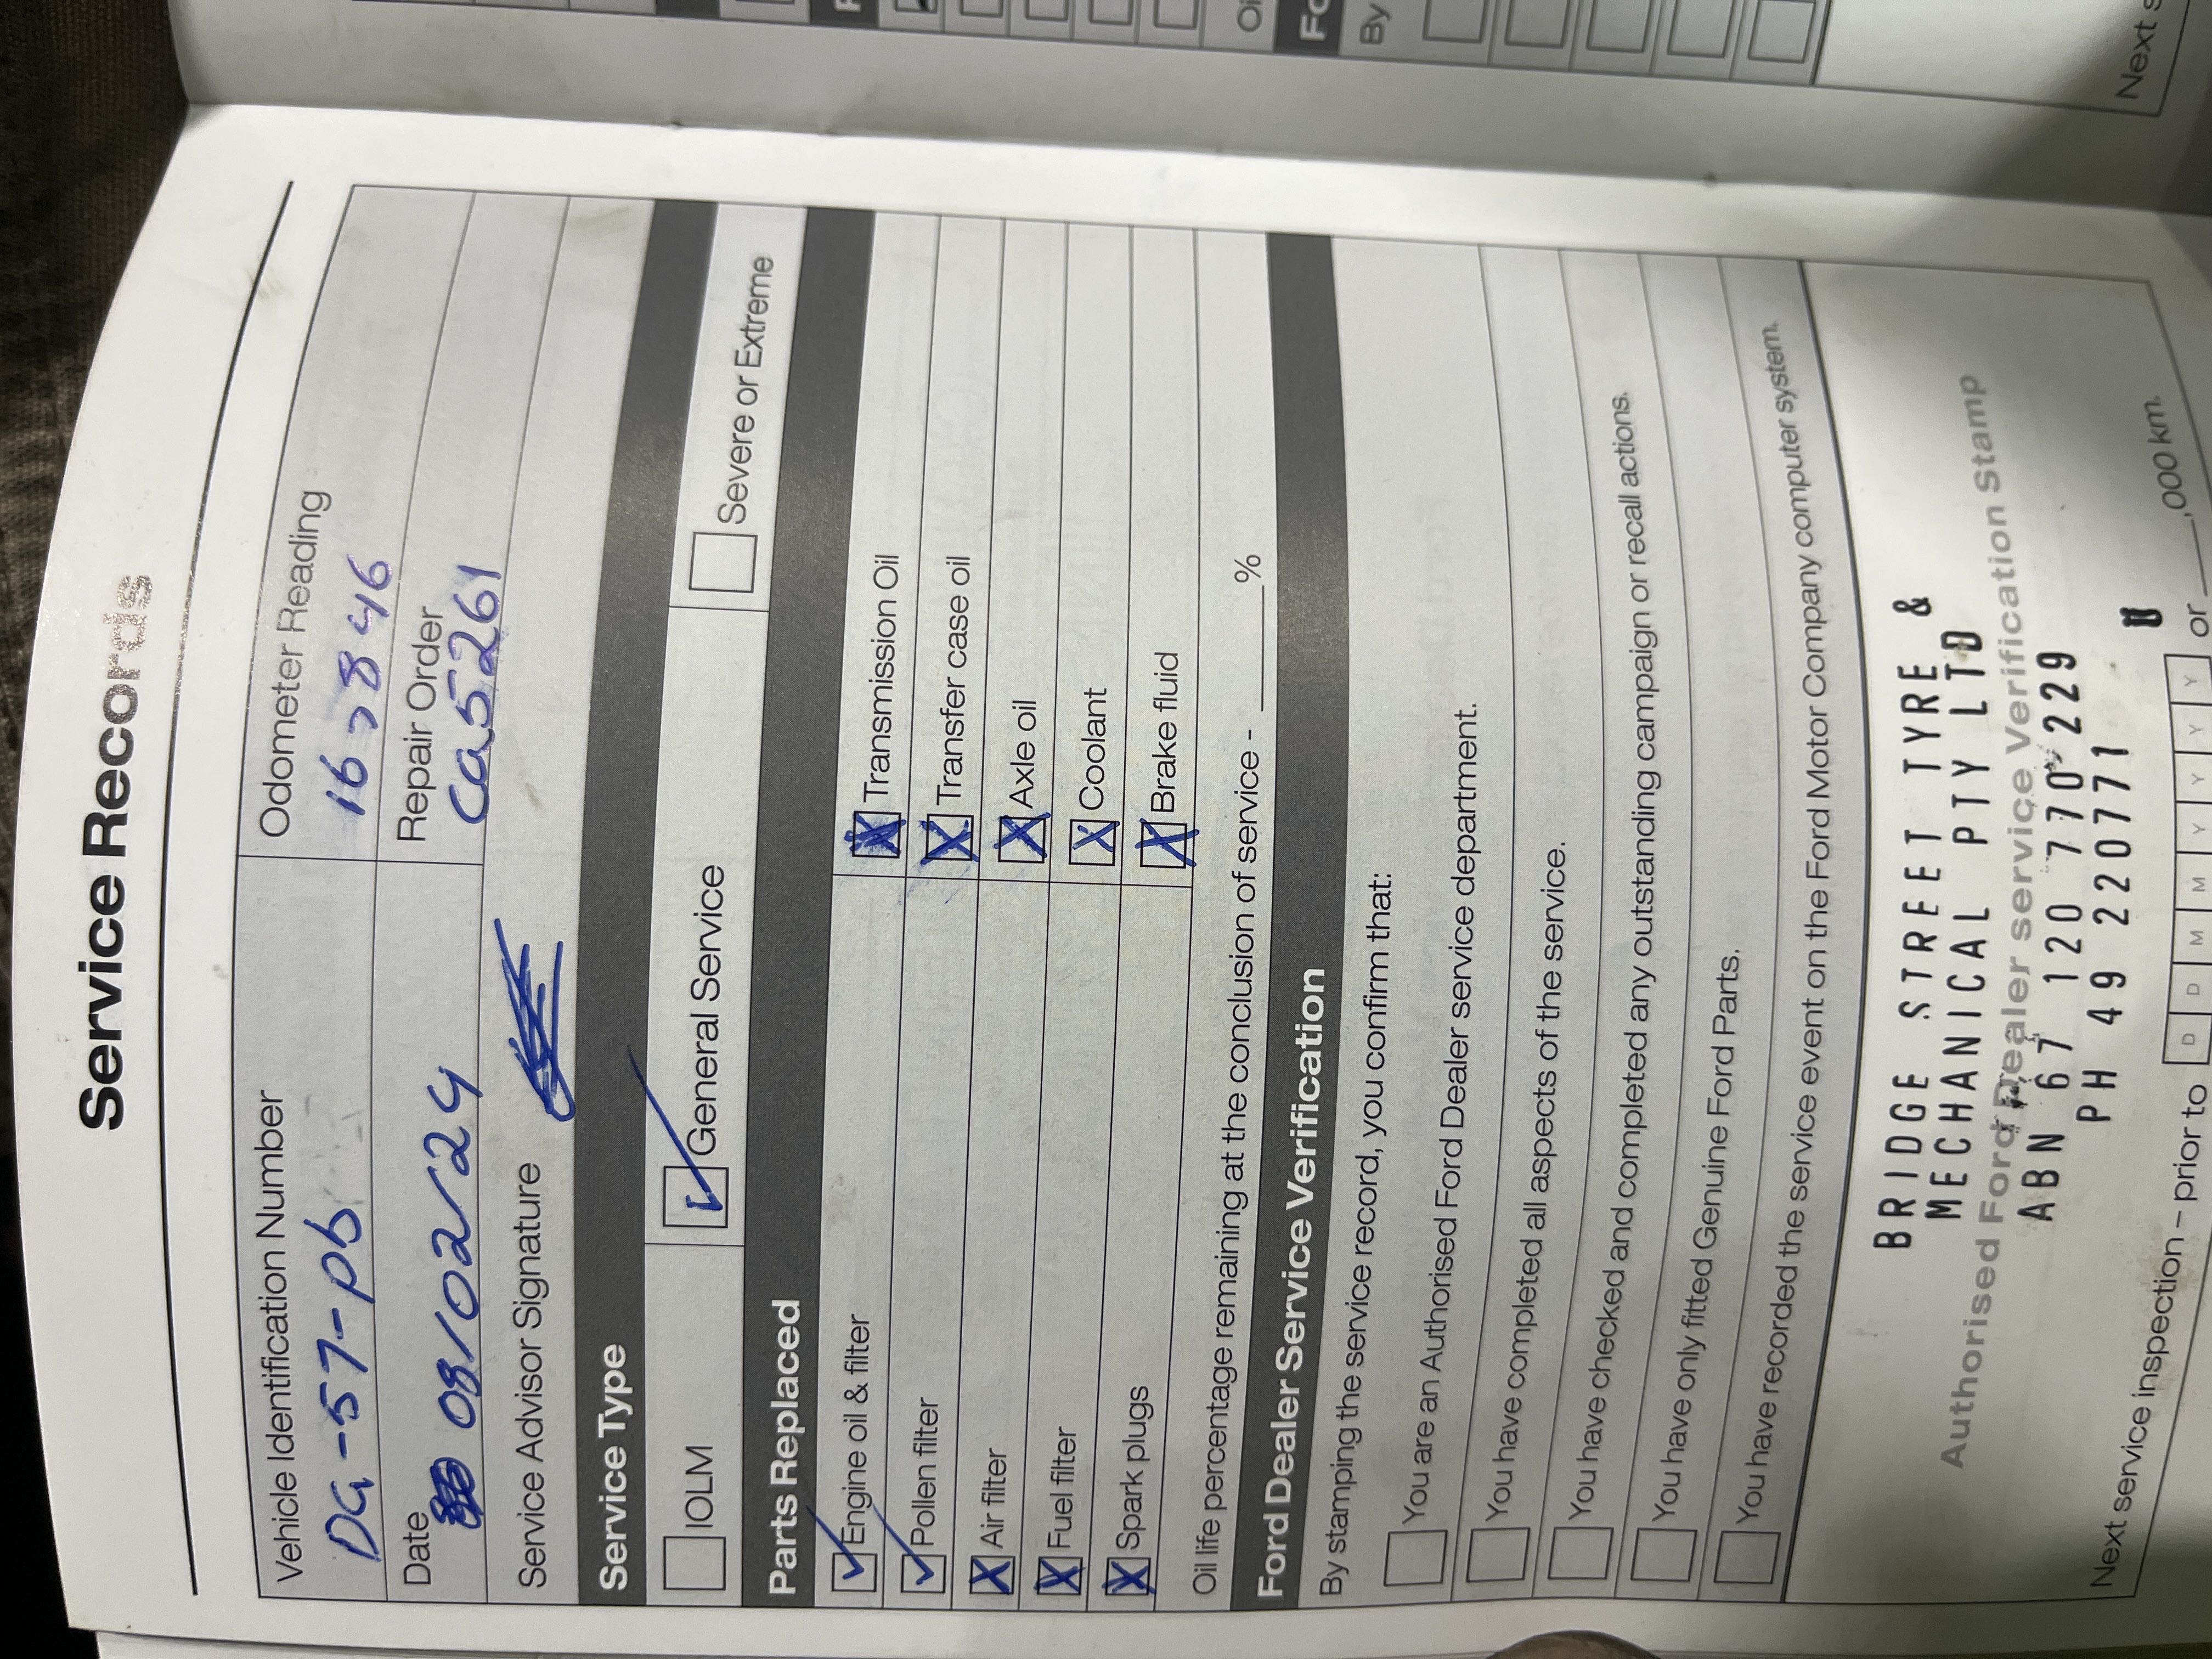 Service Records
Vehicle Identification Number
Odometer Reading
DG-57-pb
Date
08/02/24
Repair Order
Ca5261
Service Advisor Signature
Service Type
IOLM
General Service
Severe or Extreme
Parts Replaced
Engine oil & filter
Transmission Oil
Pollen filter
Transfer case oil
Air filter
Axle oil
Fuel filter
Coolant
Spark plugs
Brake fluid
Oil life percentage remaining at the conclusion of service - _____%
Ford Dealer Service Verification
By stamping the service record, you confirm that:
You are an Authorised Ford Dealer service department.
You have completed all aspects of the service.
You have checked and completed any outstanding campaign or recall actions.
You have only fitted Genuine Ford Parts.
You have recorded the service event on the Ford Motor Company computer system.
BRIDGE STREET TYRE &
MECHANICAL PTY LTD
Authorised Ford Dealer service Verification Stamp
ABN 67 120 770 229
PH 49 220771
Next service inspection – prior to D D M M Y Y Y Y or ____,000 km.
By
Next s